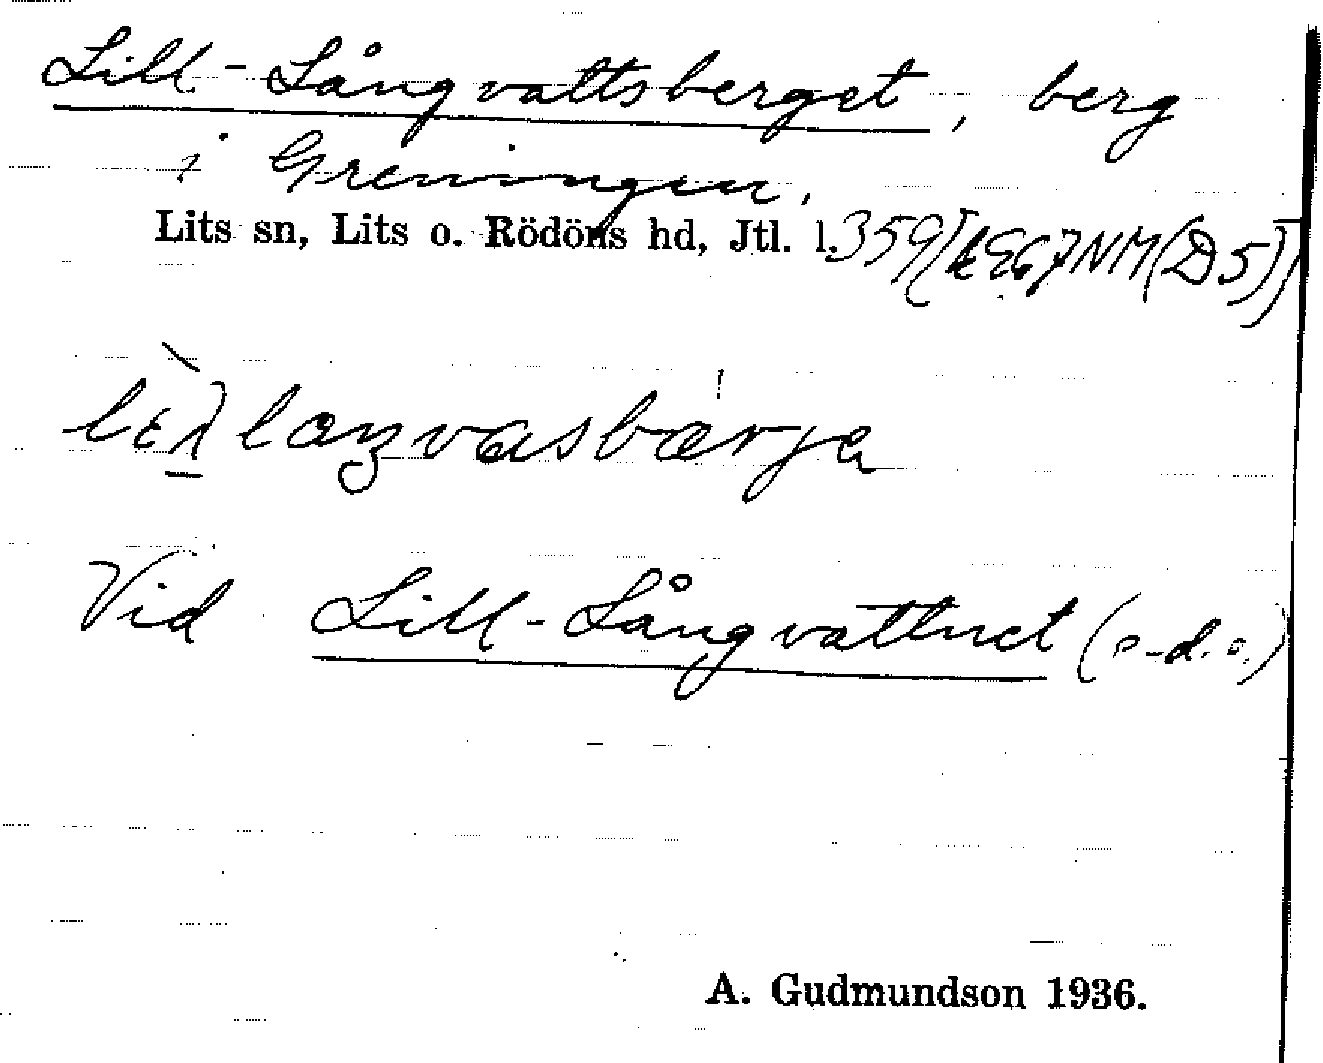 Lill-Långvattsberget, berg
i Greningen,
Lits sn, Lits o. Rödöns hd, Jtl. l. 359
Vid Lill-Långvattnet (o.d.o.)
A. Gudmundson 1936.